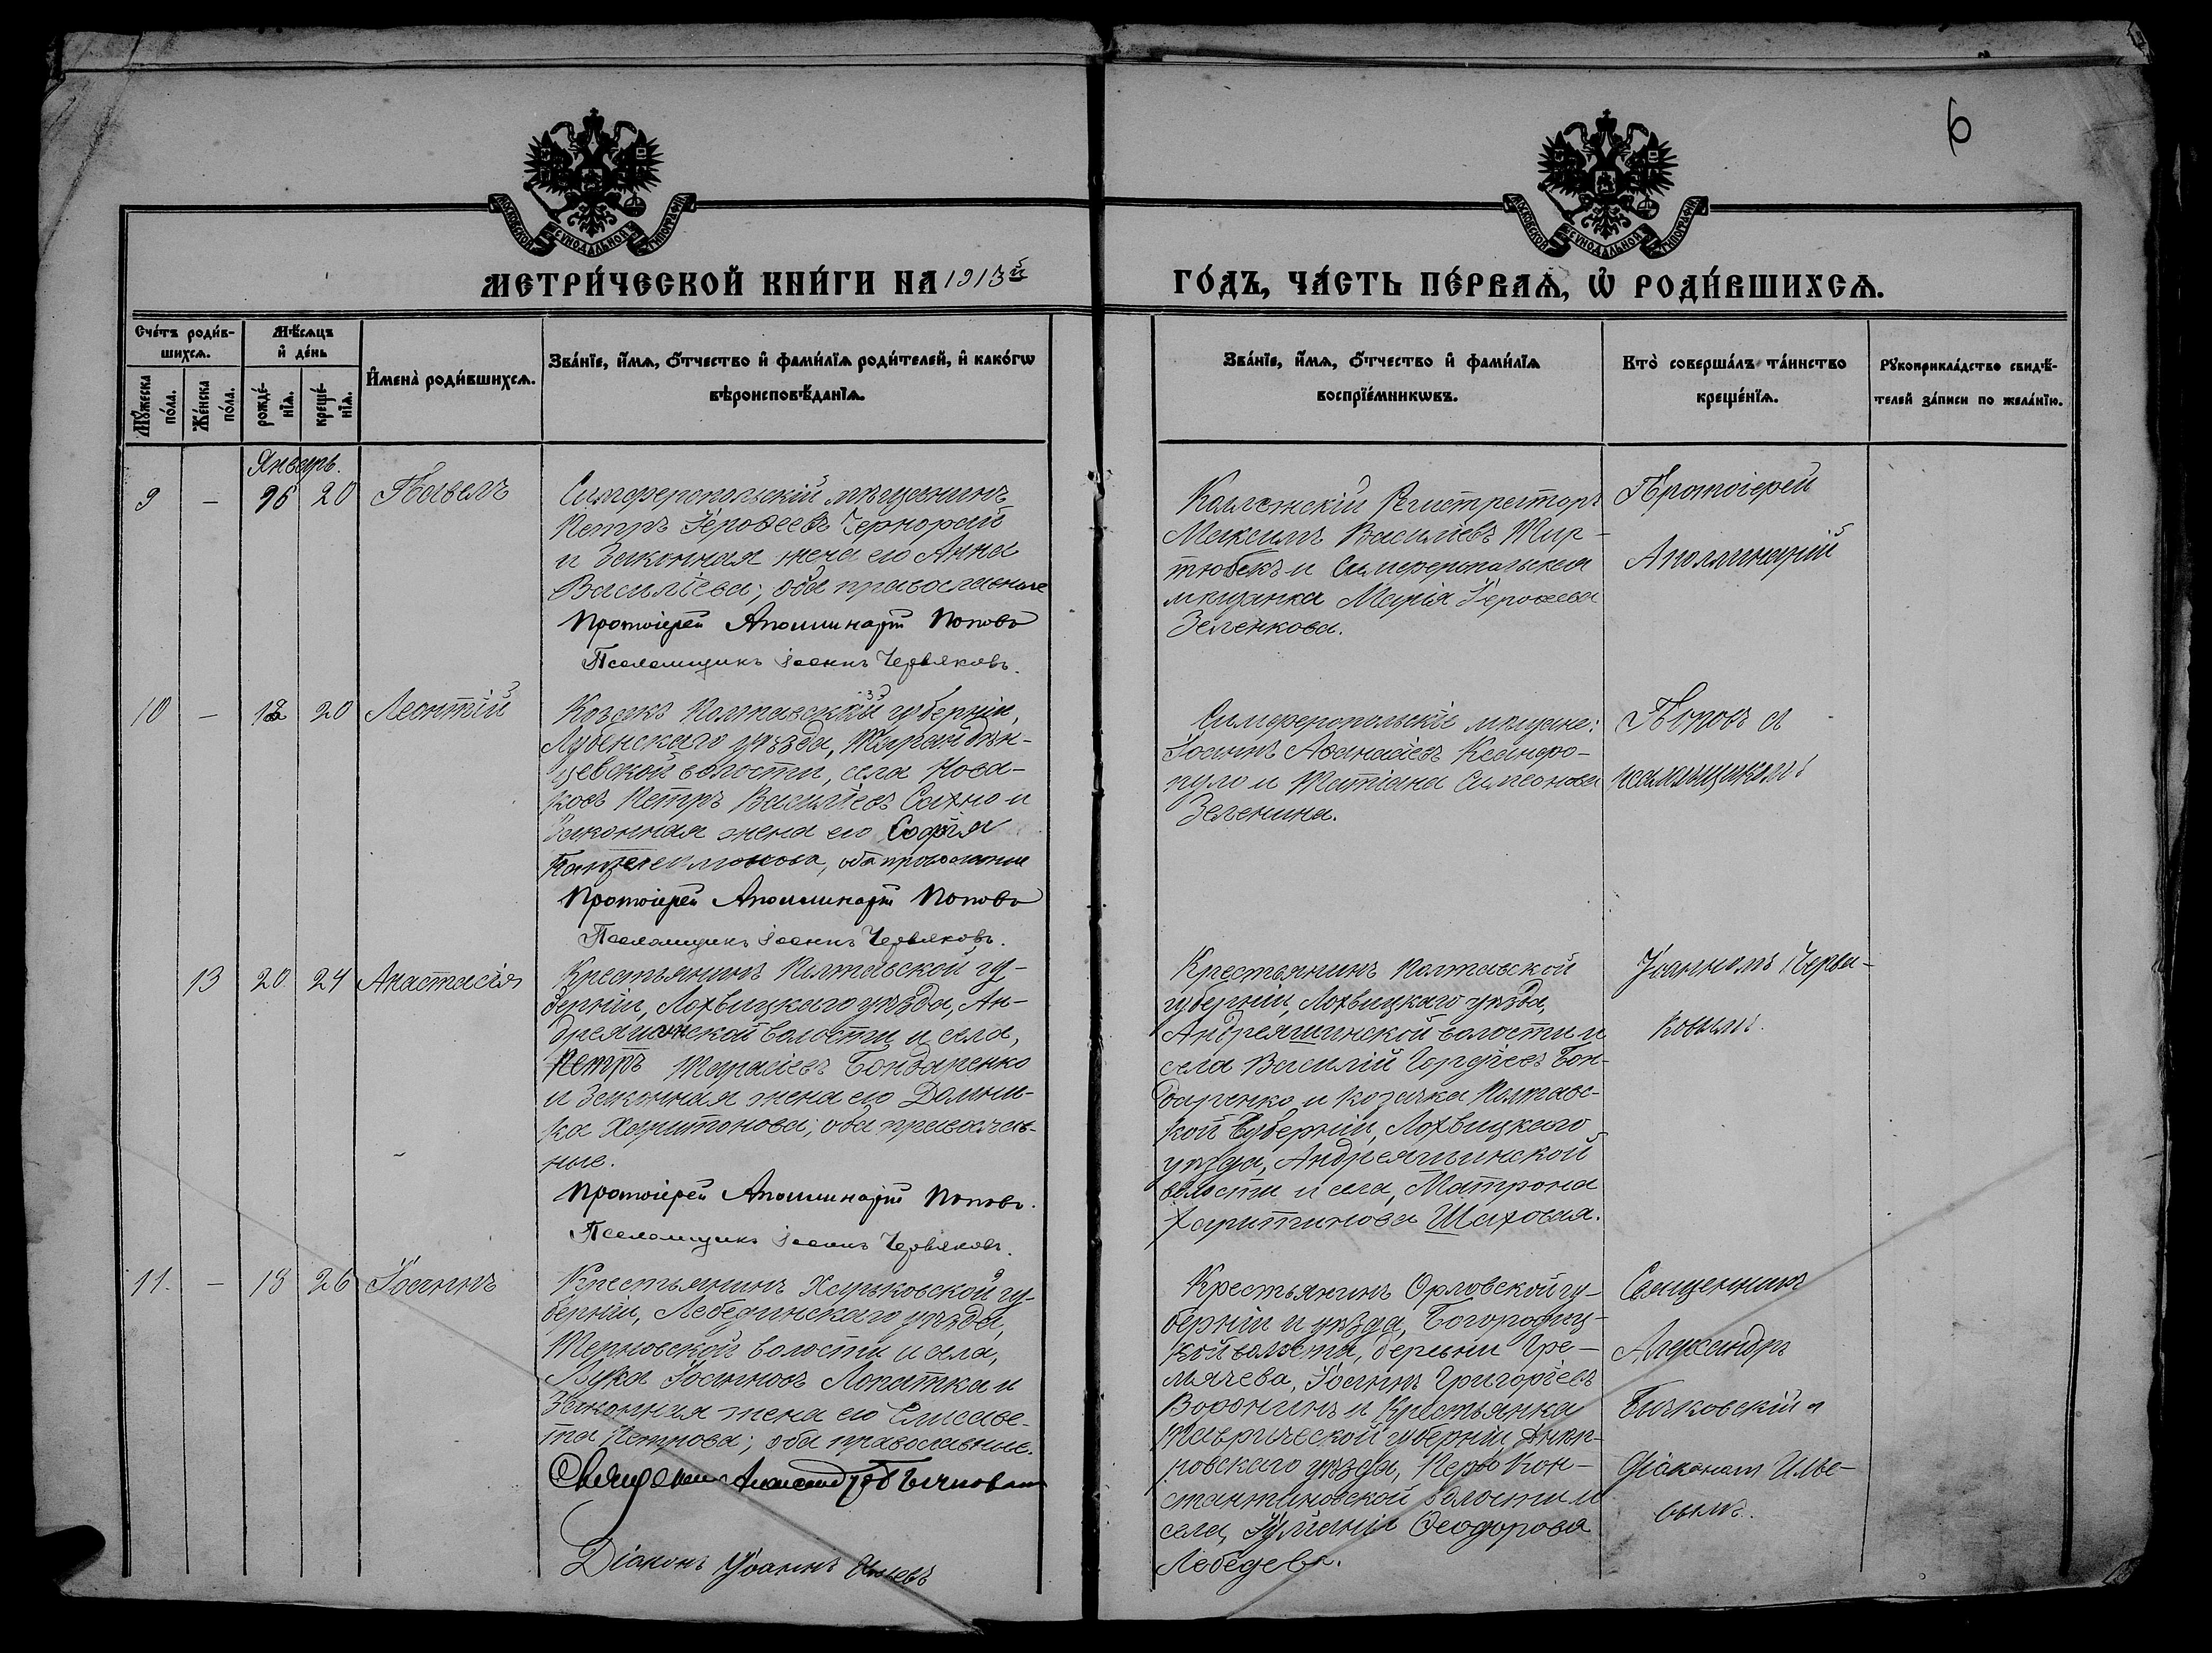 6
МОСКОВСКОЙ СѴНОДАЛЬНОЙ ТИПОГРАФІИ
МОСКОВСКОЙ СѴНОДАЛЬНОЙ ТИПОГРАФІИ
МЕТРИ́ЧЕСКОЙ КНИ́ГИ НА 1913й
ГО́ДЪ, ЧА́СТЬ ПЕ́РВАѦ, Ѡ҆ РОДИ́ВШИХСѦ.
Сче́тъ роди́в-
шихсѧ.
Мꙋ́жеска
по́ла.
Же́нска
по́ла.
Мѣ́сѧцъ
и҆ де́нь
рожде́-
нїѧ.
креще́-
нїѧ.
И҆мена̀ роди́вшихсѧ.
Зва́нїе, и҆́мѧ, ѻ҆́тчество и҆ фами́лїѧ роди́телей, и҆ како́гѡ
вѣроисповѣ́данїѧ.
Зва́нїе, и҆́мѧ, ѻ҆́тчество и҆ фами́лїѧ
воспрїе́мникѡвъ.
Кто̀ соверша́лъ та́инство
креще́нїѧ.
Рꙋкоприкла́дство свидѣ́-
телей за́писи по жела́нїю.
Январь.
9 — 16 20 Павелъ
Симферопольскій мѣщанинъ
Петръ Іероѳеевъ Чернорай
и законная жена его Анна
Василіева; оба православные
Протоіерей Аполлинарій Поповъ
Псаломщикъ Іоаннъ Червяковъ.
Коллежскій Регистраторъ
Максимъ Василіевъ Мир-
тюбекъ и Симферопольская
мѣщанка Марія Іероѳеева
Зеленкова.
Протоіерей
Аполлинарій
10 — 18 20 Леонтій
Козакъ Полтавской губерніи,
Лубенскаго уѣзда,
цевской волости, села Нова-
ковъ Петръ Василіевъ Сахно и
законная жена его Софія
Пантелеимонова, оба православные
Протоіерей Аполлинарій Поповъ
Псаломщикъ Іоаннъ Червяковъ.
Симферопольскіе мѣщане:
Іоаннъ Аѳанасіевъ Ксанфо-
пуло и Татіана Симеонова
Зеленина.
Поповъ съ
псаломщикомъ
13 20 24 Анастасія
Крестьянинъ Полтавской гу-
берніи, Лохвицкаго уѣзда, Ан-
дреяшинской волости и села,
Петръ Тарасіевъ Бондаренко
и законная жена его Домни-
ка Харитонова; оба православ-
ные.
Протоіерей Аполлинарій Поповъ.
Псаломщикъ Іоаннъ Червяковъ.
Крестьянинъ Полтавской
губерніи, Лохвицкаго уѣзда,
Андреяшинской волости и
села Василій Гордіевъ Бон-
даренко и козачка Полтавс-
кой Губерніи, Лохвицкаго
уѣзда, Андреяшинской
волости и села, Матрона
Харитинова Шаховая.
Іоанномъ Червя-
ковымъ.
11. — 18 26 Іоаннъ
Крестьянинъ Харьковской гу-
берніи, Лебединскаго уѣзда,
Терновской волости и села,
Лука Іоанновъ Лопатка и
законная жена его Елисаве-
та Петрова; оба православные.
Священникъ Александръ Бычковскій
Діаконъ Іоаннъ Ильевъ
Крестьянинъ Орловской гу-
берніи и уѣзда, Богородиц-
кой волости, деревни Гре-
мячева, Іоаннъ Григоріевъ
Воронинъ и Крестьянка
Таврической губерніи, Днѣп-
ровскаго уѣзда, Перво Кон-
стантиновской волости и
села, Іуліанія Ѳеодорова
Лебедева.
Священникъ
Александръ
Бычковскій и
Діакономъ Илье-
вымъ.